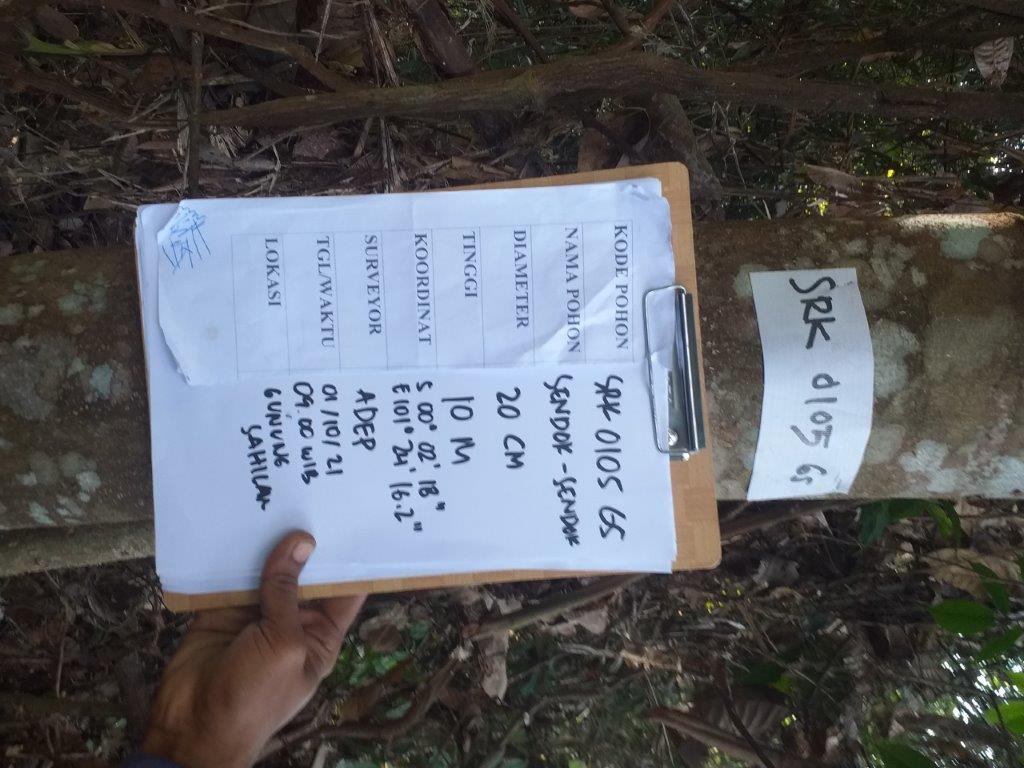 SRK 0105 GS
KODE POHON SRK 0105 GS
NAMA POHON SENDOK - SENDOK
DIAMETER 20 CM
TINGGI 10 M
KOORDINAT S 00° 02' 18"
E 101° 24' 16.2"
SURVEYOR ADEP
TGL/WAKTU 01/10/21
09.00 WIB
LOKASI GUNUNG
SAHILAN